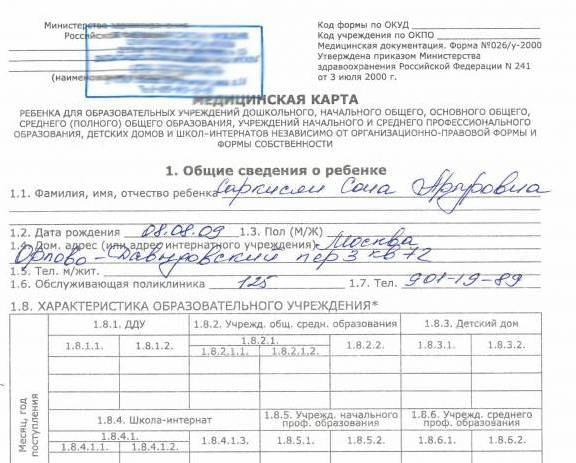 Министерство здравоохранения
Российской
(наименование
Код формы по ОКУД
Код учреждения по ОКПО
Медицинская документация. Форма №026/у-2000
Утверждена приказом Министерства
здравоохранения Российской Федерации N 241
от 3 июля 2000 г.
МЕДИЦИНСКАЯ КАРТА
РЕБЕНКА ДЛЯ ОБРАЗОВАТЕЛЬНЫХ УЧРЕЖДЕНИЙ ДОШКОЛЬНОГО, НАЧАЛЬНОГО ОБЩЕГО, ОСНОВНОГО ОБЩЕГО,
СРЕДНЕГО (ПОЛНОГО) ОБЩЕГО ОБРАЗОВАНИЯ, УЧРЕЖДЕНИЙ НАЧАЛЬНОГО И СРЕДНЕГО ПРОФЕССИОНАЛЬНОГО
ОБРАЗОВАНИЯ, ДЕТСКИХ ДОМОВ И ШКОЛ-ИНТЕРНАТОВ НЕЗАВИСИМО ОТ ОРГАНИЗАЦИОННО-ПРАВОВОЙ ФОРМЫ И
ФОРМЫ СОБСТВЕННОСТИ
1. Общие сведения о ребенке
1.1. Фамилия, имя, отчество ребенка Саркисян Сона Артуровна
1.2. Дата рождения 08.08.09 1.3. Пол (М/Ж)
1.4. Дом. адрес (или адрес интернатного учреждения) Москва
Орлово-Давыдовский пер 3 кв 72
1.5. Тел. м/жит.
1.6. Обслуживающая поликлиника 125 1.7. Тел. 901-19-89
1.8. ХАРАКТЕРИСТИКА ОБРАЗОВАТЕЛЬНОГО УЧРЕЖДЕНИЯ*
Месяц, год поступления
1.8.1. ДДУ 1.8.2. Учрежд. общ. средн. образования 1.8.3. Детский дом
1.8.1.1. 1.8.1.2. 1.8.2.1. 1.8.2.2. 1.8.3.1. 1.8.3.2.
1.8.2.1.1. 1.8.2.1.2.
1.8.4. Школа-интернат 1.8.5. Учрежд. начального проф. образования 1.8.6. Учрежд. среднего проф. образования
1.8.4.1. 1.8.4.1.3. 1.8.5.1. 1.8.5.2. 1.8.6.1. 1.8.6.2.
1.8.4.1.1. 1.8.4.1.2.